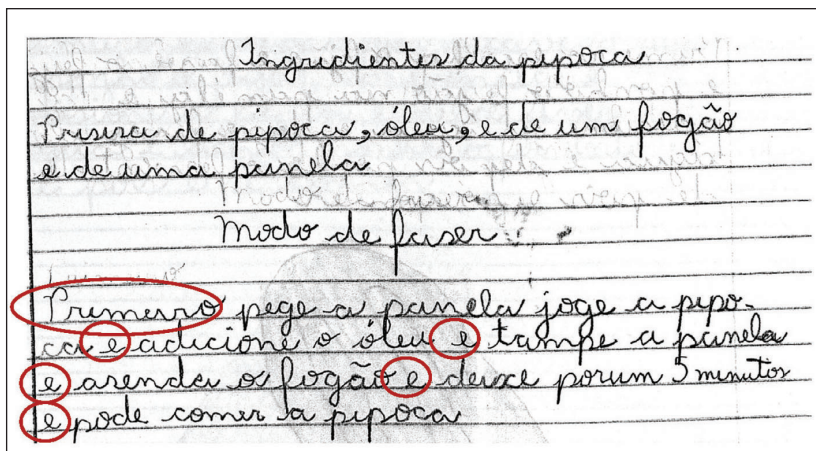 Ingridientes da pipoca
Prisira de pipoca, óleu, e de um fogão
e de uma panela
Modo de faser
Primeiro pege a panela joge a pipo-
ca e adicione o óleu e tampe a panela
e asenda o fogão e deixe porum 5 minutos
e pode comer a pipoca